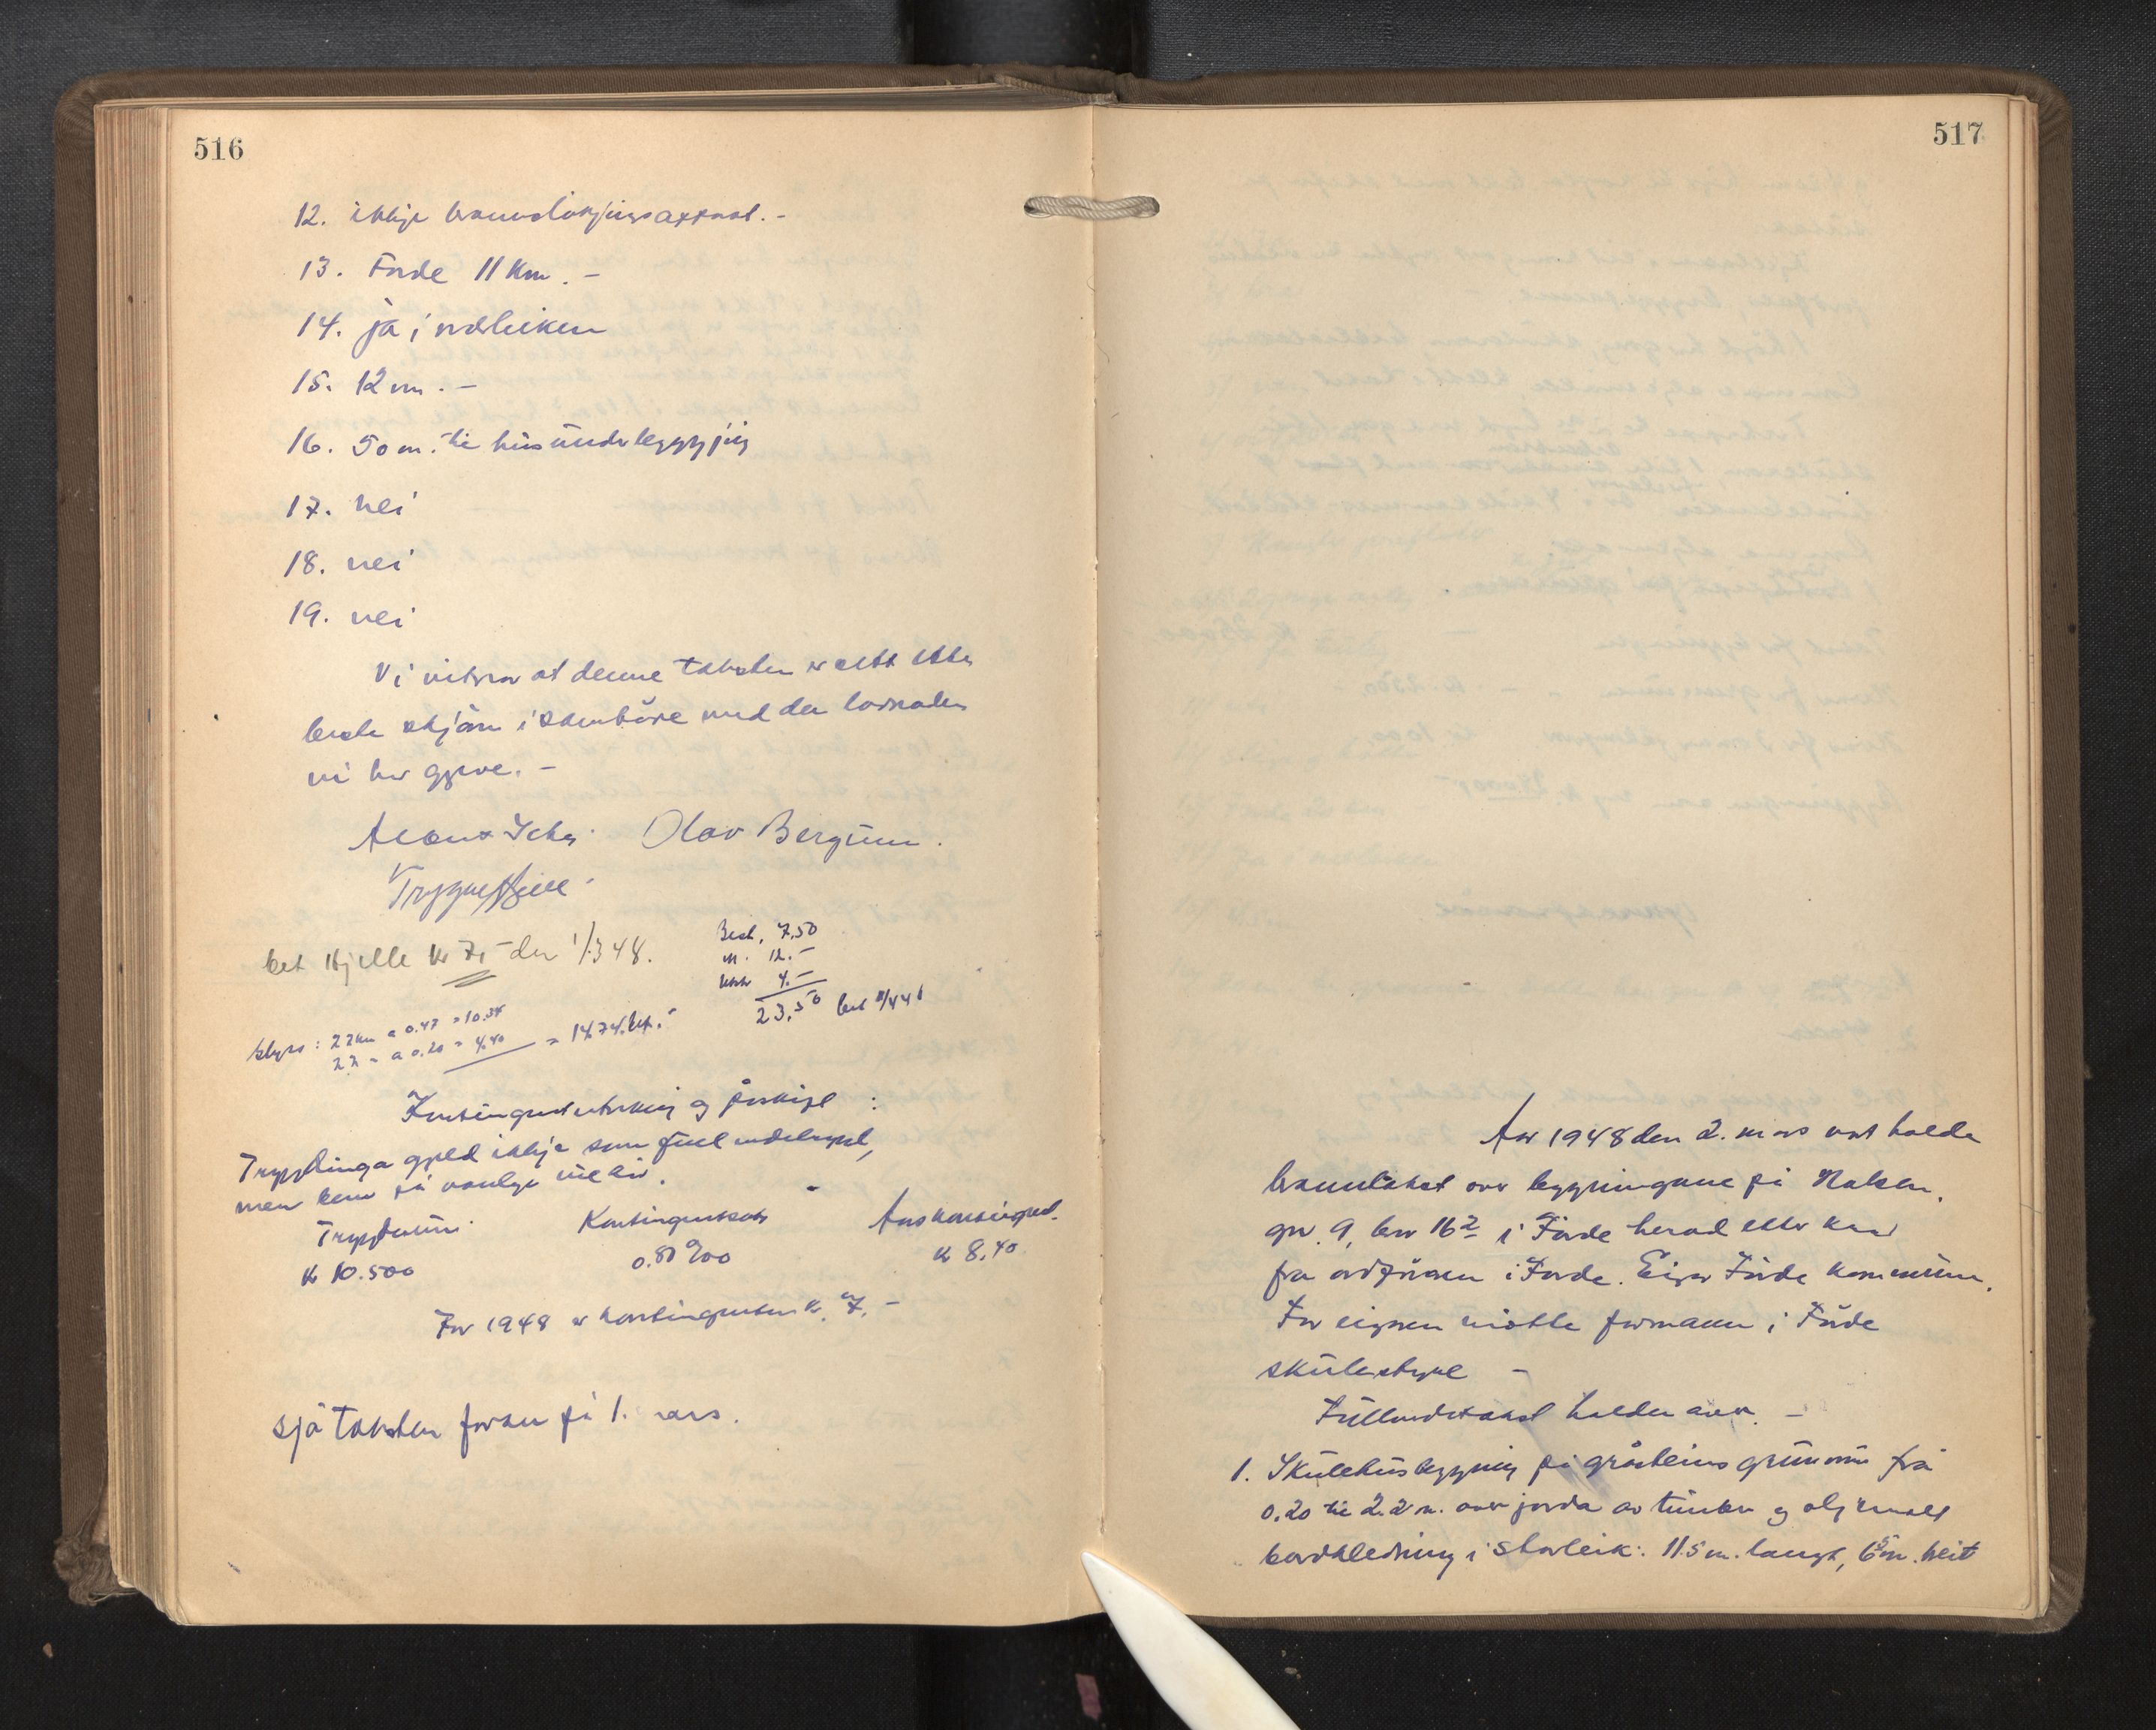 516
12. ikkje branndökjingsapparat. -
13. Förde 11 Km. -
14. ja i nærleiken
15. 12 m. -
16. 50 m. til hus under byggjing
17. nei
18. nei
19. nei
Vi vitnar at denne taksten er sett etter
beste skjön i samhöve med den lovnaden
vi har gjeve. -
Olav Bergum.
Trygve Hjelle.
bet Hjelle kr 7,- den 1/3 48.
7.50
12.-
4.-
23.50 bet
Skyss: 22 km a 0.47 = 10.34
22 - a 0.20 = 4.40 = 14.74 bet.-
Kontingentutrekning og forskjel :
Trygdinga gjeld ikkje som full endeleg,
men berre på vanlege vilkår.
Trygdesum Kontingentsats Årskontingent.
kr 10.500 0.80 ‰ kr 8,40
For 1948 er kontingenten kr. 7. -
sjå Taksten foran på 1. mars.
517
Aar 1948 den 2. mars vart halde
branntakst over bygningane på
gnr. 9, bnr 16² i Förde herad etter krav
fra ordföraren i Förde. Eigar Förde kommune.
For eigaren mötte formann i Förde
skulestyre -
Fullverdstakst halden over. -
1. Skulehusbygning på gråsteins grunnmur frå
0.20 til 2.2 m. over jorda av timber og oljemalt
bordkledning i storleik: 11.5 m. langt, 6⁵ m. breit